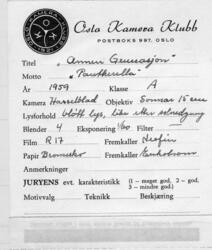 OSLO KAMERA KLUBB
Oslo Kamera Klubb
POSTBOKS 997, OSLO
Titel „Annen Generasjon"
Motto „Pantherella"
År 1959 Klasse A
Kamera Hasselblad Objektiv Sonnar 15 cm
Lysforhold bløtt lys, like etter solnedgang
Blender 4 Eksponering 1/60 Filter —
Film R 17 Fremkaller
Papir Bromesko Fremkaller
Anmerkninger
JURYENS evt. karakteristikk (1 - meget god, 2 - god, 3 - mindre god)
Motivvalg Teknikk Beskjæring